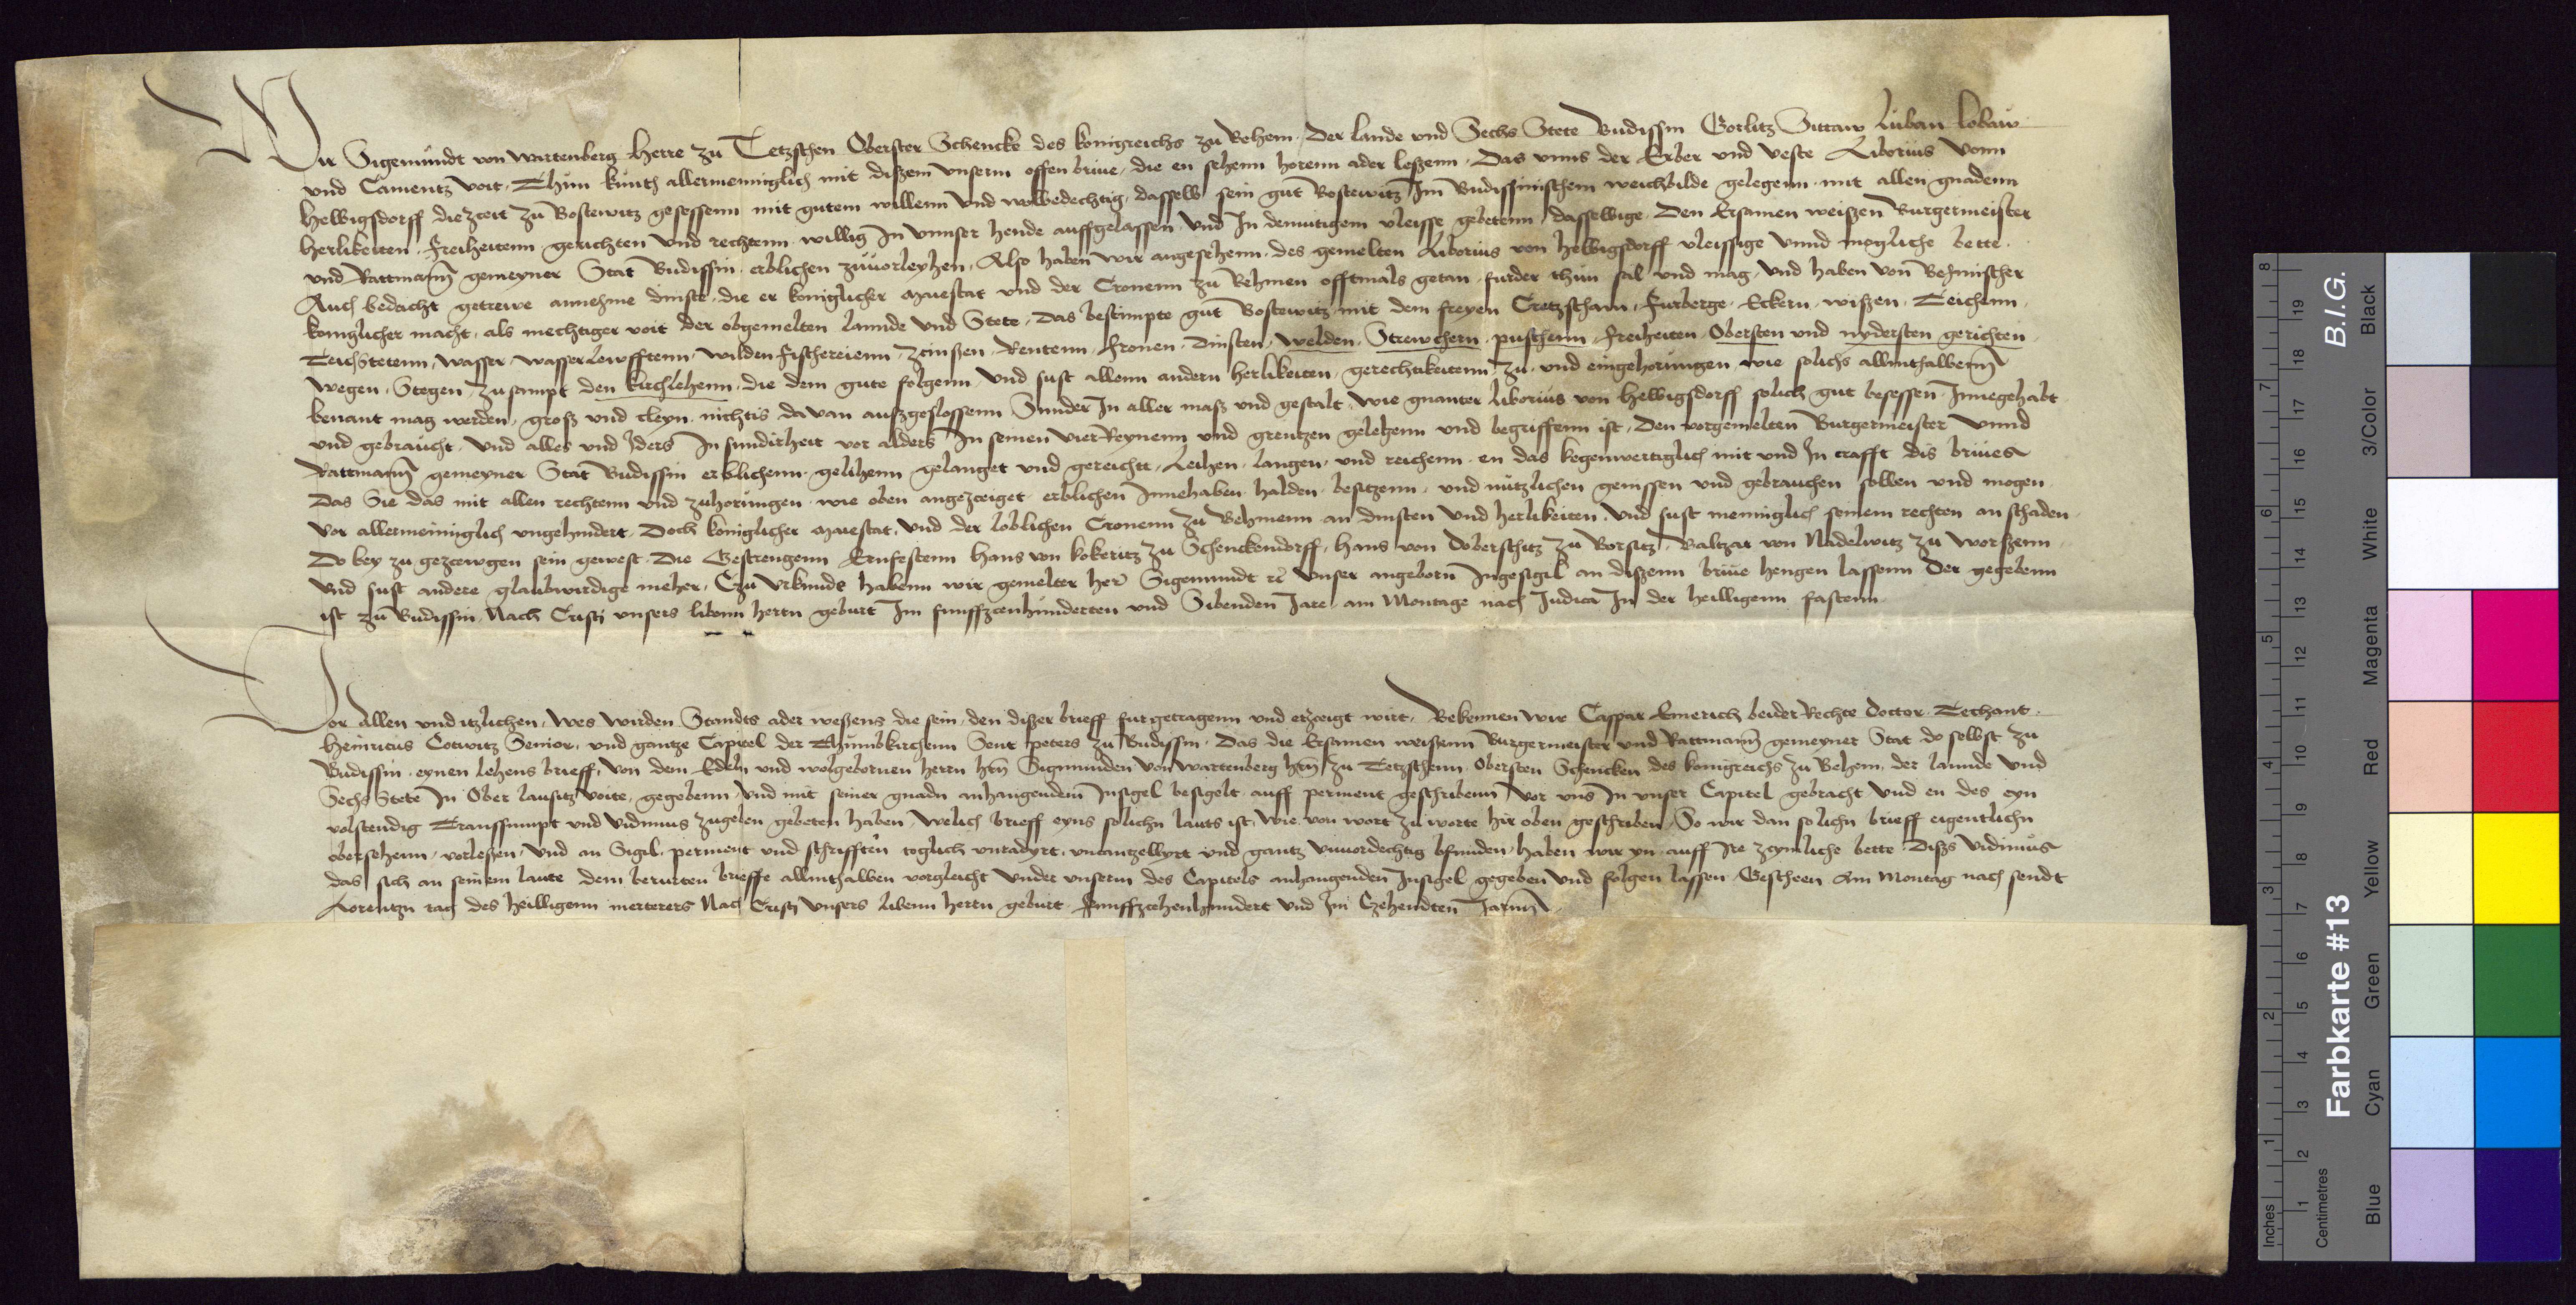 Wir Sigemundt von Wartenberg Herre zu Tetzschen Oberster Schencke des konigreichs zu Behem, Der lande vnd Sechs Stete Budissin Gorlitz Sittaw Luban Lobaw
vnd Camentz voit, Thun kunth allermenniglich mit dißem vnserm offen briue, die en sehenn horenn ader leßenn, Das vnns der Erber vnd veste Liborius vonn
Helwigsdorff die zceit zu Bostewitz gesessenn mit gutem willenn vnd wolbedechtig, dasselb sein gut Bostewitz Im Budissinischem weichbilde gelegenn, mit allen gnadenn
herlikeiten, freiheitenn gerichten vnd rechtenn willig In vnnser hende auffgelassen, vnd In demutigem vleisse gebetenn, dasselbige, Den Ersamen weißen Burgermeister
vnd Rattmann gemeyner Stat Budissin, erblichen zuuorleyhen, Also haben wir angesehenn, des gemelten Liborius von Helwigsdorff vleissige vnnd mogliche bette,
Auch bedacht getrewe annehme dinste, die er koniglicher Maiestat vnd der Cronenn zu Behmen offtmals getan, furder thun sal vnd mag, vnd haben von Behmischer
koniglicher macht, als mechtiger voit der obgemelten lannde vnd Stete, Das bestimpte gut Bostewitz mit dem freyen Cretzscham, Furberge, Eckern, wißen, Teichenn,
Teichstetenn, wasser, wasserlewfftenn, wilden fischereienn, zcinßen, Rentenn, fronen, dinsten, welden, Strewchern, puschenn, freiheiten, Obersten vnd nydersten gerichten,
wegen, Stegen, zu sampt den kirchlehenn, die dem gute folgenn, vnd sust allenn andern herlikeiten, gerechtikeitenn zu, vnd eingehorungen, wie solichs allinthalbenn
benant mag werden, groß vnd cleyn, nichtis dauan außgeslossenn Sunder In aller maß vnd gestalt, wie gnanter liborius von Helwigsdorff solich gut besessen Innegehabt
vnd gebraucht, vnd alles vnd Iders In sundirheit vor alders In seinen vier Reynenn vnd grentzen gelegenn vnd begriffenn ist, Den vorgemelten Burgermeister vnnd
Rattmann gemeyner Stat Budissin erblichenn gelihenn gelanget vnd gereicht, Leihen, langen, vnd reichenn, en das kegenwertiglich mit vnd In crafft dis briues
Das Sie das mit allen rechtenn vnd zuhorungen, wie oben angezceiget, erblichen Innehaben, halden, besitzenn, vnd nutzlichen genissen vnd gebrauchen sollen vnd mogen,
vor allermenniglich vngehindert, Doch koniglicher Maiestat, vnd der loblichen Cronenn zu Behmenn an dinsten vnd herlikeiten, vnd sust menniglich seinem rechten an schaden,
Do bey zu gezcewgen sein gewest, Die Gestrengenn Ernfestenn Hans von kokeritz zu Schenckendorff, Hans von Doberschitz zu Borsitz, Baltzar von Nadelwitz zu worßenn,
vnd sust andere glaubwirdige meher, Czu vrkunde habenn wir gemelter Her Sigemundt etc vnser angeborn Ingesigil an dißenn briue hengen lassenn Der gegebenn
ist zu Budissin, Nach Cristi vnsers libenn hern geburt Im funffzcenhunderten vnd Sibenden Jare, am Montage nach Judica In der heilligenn fastenn
Vor Allen vnd itzlichen, wes wirden Standts ader weßens die sein, den dißer brieff fur getragenn vnd erzceigt wirt, Bekennen wir Caspar Emerich beider Rechte doctor, Techant,
Heinricus Cotwitz Senior, vnd gantze Capitel der Thumbkirchenn Sent peters zu Budissin, Das die Ersamen weißenn Burgermeister vnd Rattmann gemeyner Stat do selbst zu
Budissin, eynen lehens brieff, von dem Edeln vnd wolgebornen herrn hern Sigmunden von Wartenberg hern zu Tetzschenn, Obersten Schencken des konigreichs zu Behem, der lannde vnd
Sechs Stete In Ober lausitz voite, gegebenn, vnd mit seiner gnadn anhangendem Insigel besigelt, auff perment geschribenn vor vns In vnser Capitel gebracht vnd en des eyn
volstendig Transsumpt vnd vidimus zugeben gebeten haben, welich brieff eyns solichn lauts ist, wie von wort zu worte hir oben geschriben, So wir dan solichn brieff eigentlichn
obersehenn, vorleßen, vnd an Sigil, perment vnd schrifften toglich vnradyrt, vncantzellyrt vnd gantz vnuordechtig befunden, haben wir yn auff Ire zcymliche bette, Dißs vidimus
das sich an seinem laute dem berurten brieffe allinthalben vorgleicht vnder vnserm des Capitels anhangenden Insigel gegeben vnd folgen lassen, Gescheen Am Montag nach sendt
Lorentzn tag des heilligenn merterers Nach Cristi vnsers libenn hern geburt, funffzcehenhundert vnd Im Czehendten Jarenn
8 7 6 5 4 3 2 1 Inches
19 18 17 16 15 14 13 12 11 10 9 8 7 6 5 4 3 2 1 Centimetres
Farbkarte #13 B.I.G.
Blue Cyan Green Yellow Red Magenta White 3/Color Black